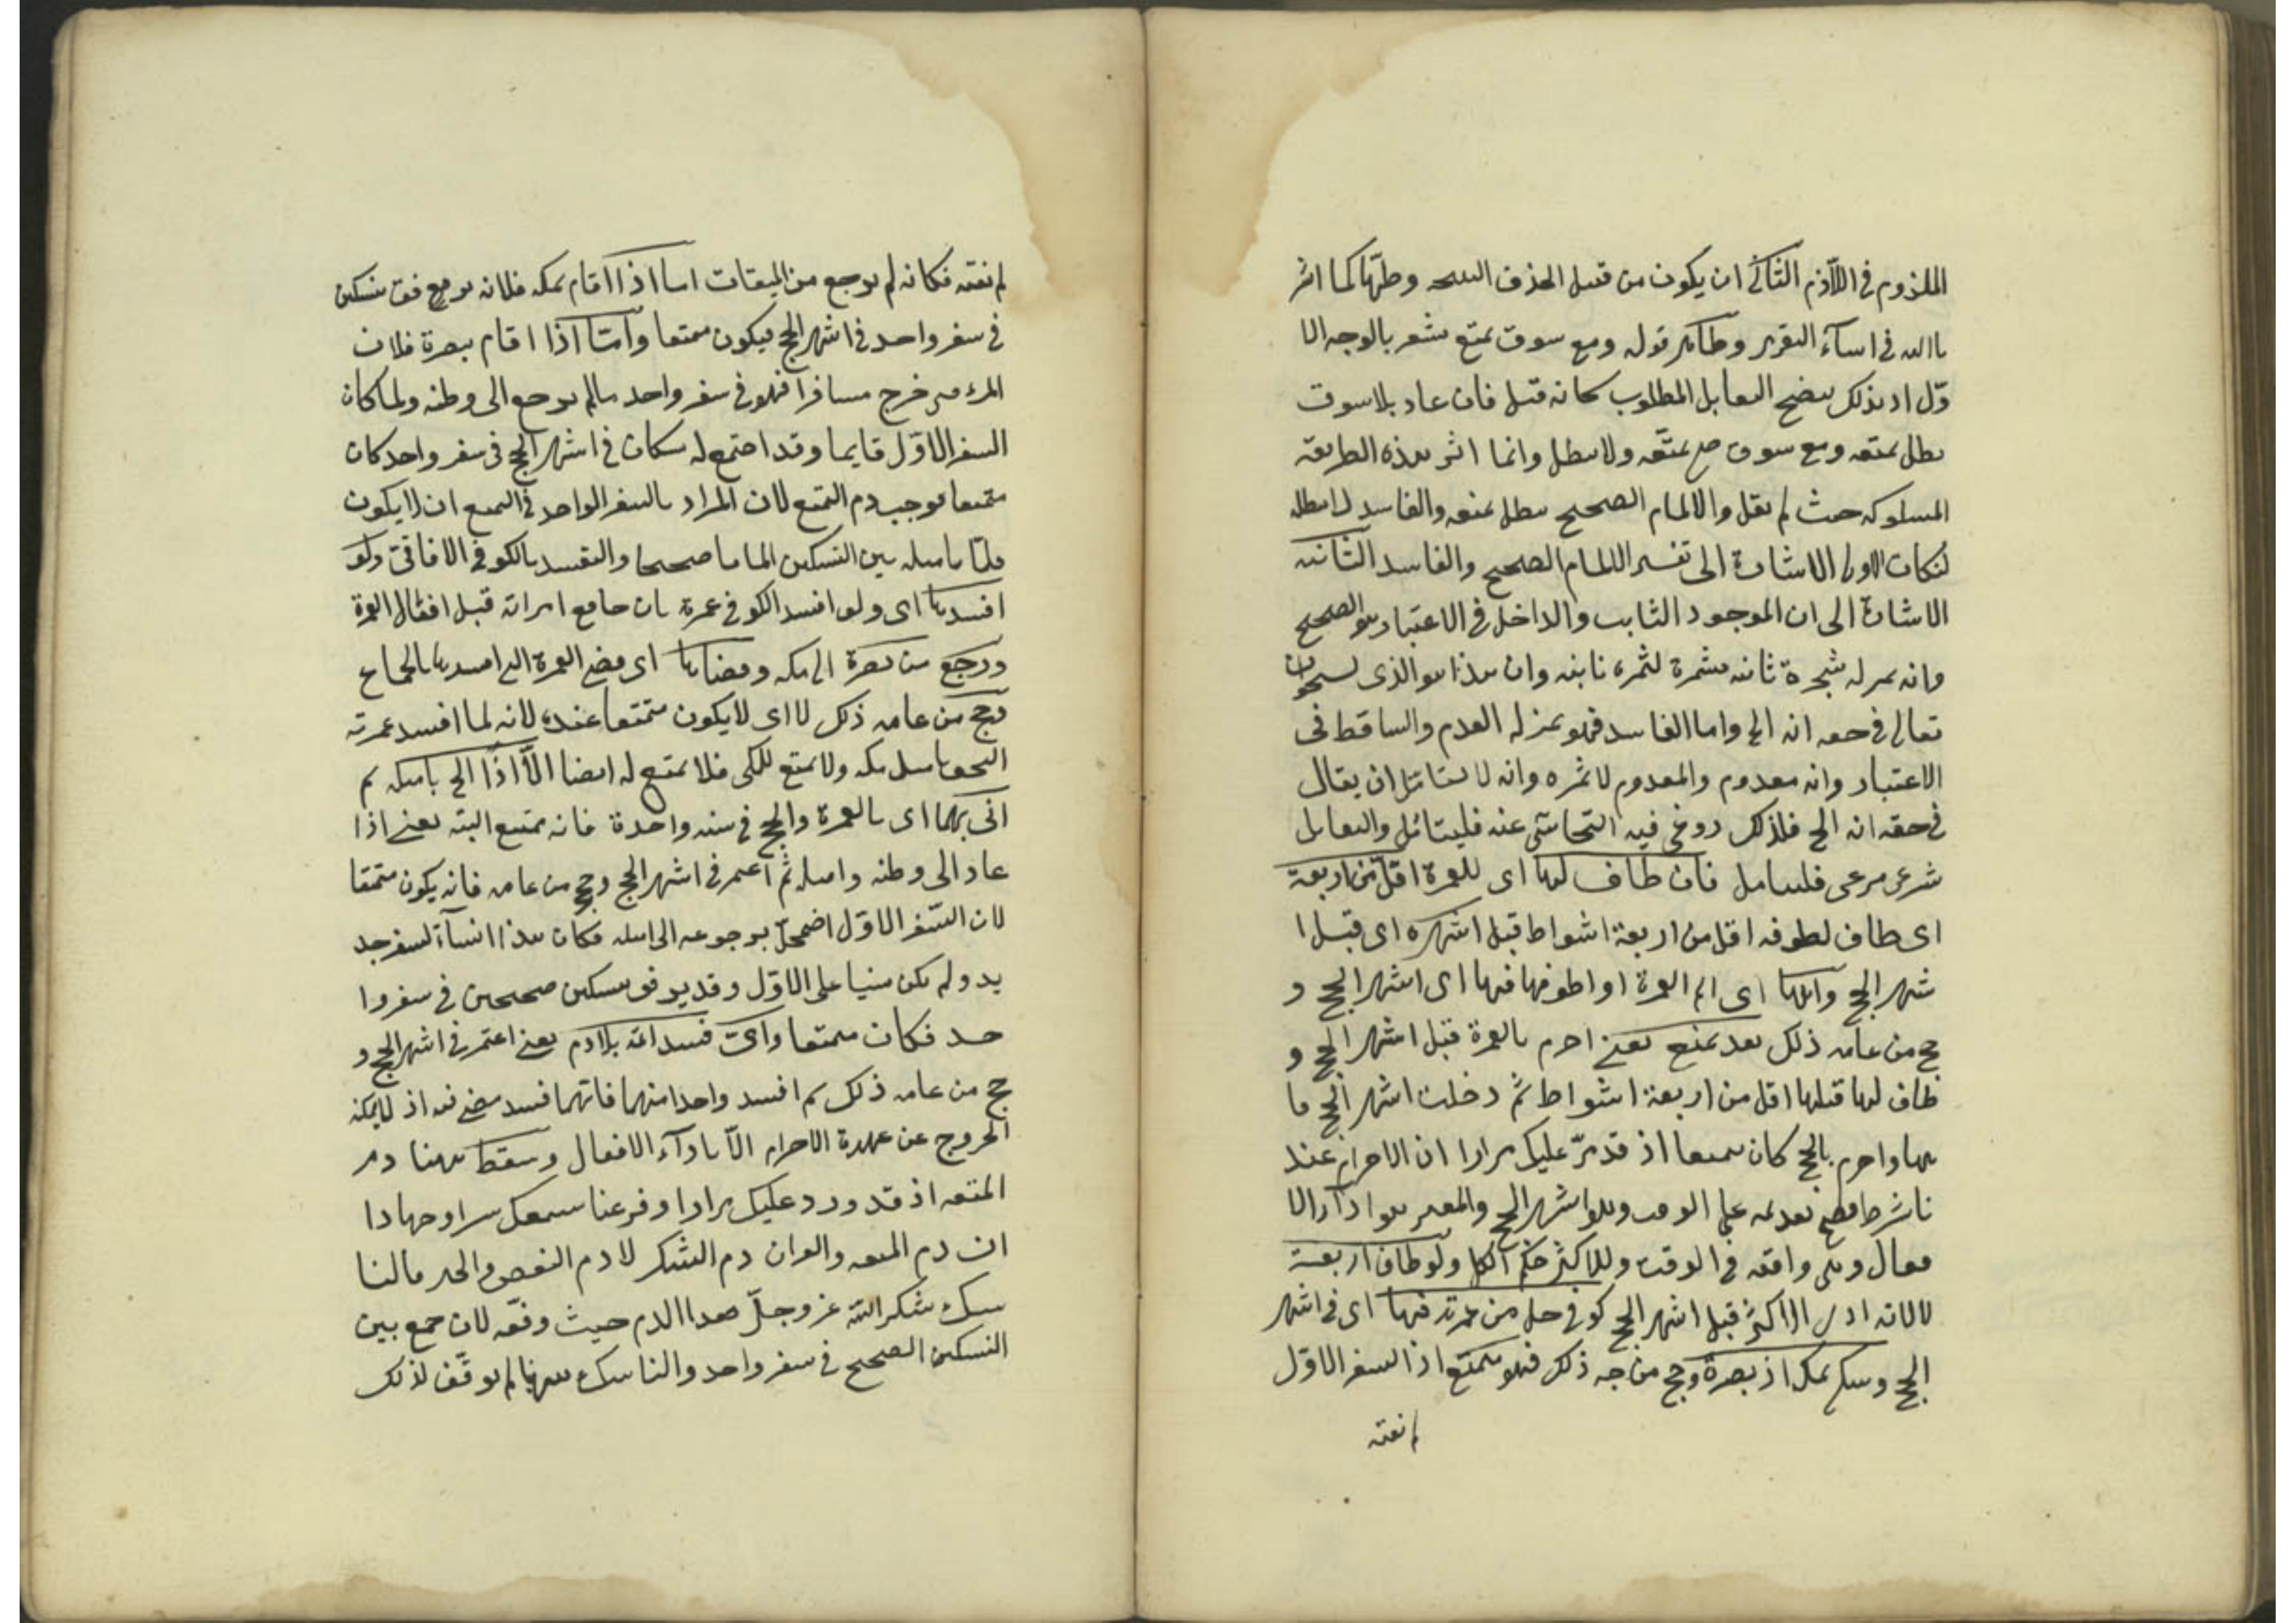 الملزوم في اللازم الثاني ان يكون من قبيل الحذف وطيها كما اشر
في اثناء التقرير وظاهر قوله ومع سوق تمتع مشعر بالوجه الا
وّل اذ بذلك يتضح التقابل المطلوب كانه قيل فان عاد بلا سوق
بطل تمتعه ومع سوق صح تمتعه ولا يبطل وانما اثر هذه الطريقة
المسلوكة حيث لم يقل والالمام الصحيح يبطل تمتعه والفاسد لا يبطله
لنكات الاولى الاشارة الى تفسير الالمام الصحيح والفاسد الثانية
الاشارة الى ان الموجود الثابت والداخل في الاعتبار هو الصحيح
وانه بمنزلة شجرة ثابتة مثمرة لثمرة وان هذا هو الذي يستحق ان
يقال في حقه انه الم واما الفاسد فهو بمنزلة العدم والساقط في
الاعتبار وانه معدوم والمعدوم لا ثمرة وانه لا يستاهل ان يقال
في حقه انه الم فلذلك روعي فيه التحاشي عنه فليتامل والتقابل
شرعي مرعي فليتامل فان طاف لها اي للعمرة اقل من اربعة
اى طاف لطوفه اقل من اربعة اشواط قبل اشهره اى قبل ا
شهر الحج واتمها اى اتم العمرة او اطوفها فيها اى اشهر الحج و
حج من عامه ذلك بعد تمتع يعني احرم بالعمرة قبل اشهر الحج و
طاف لها قبلها اقل من اربعة اشواط ثم دخلت اشهر الحج فا
تمها واحرم بالحج كان متمتعا اذ قد مرّ عليك مرارا ان الاحرام عند
نا شرط فصح تقديمه على الوقت وهو اشهر الحج والمعتبر هو اداء الا
فعال وهى واقعة في الوقت وللاكثر حكم الكل ولو طاف اربعة
لا لانه ادى الاكثر قبل اشهر الحج كوفي حل من عمرته فيها اى في اشهر
الحج وسكن بمكة او بصرة وحج من ذلك فهو متمتع اذ السفر الاوّل
لم ينته
لم ينته فكانه لم يرجع من الميقات اما اذا اقام بمكة فلانه ترفق بنسكين
في سفر واحد في اشهر الحج فيكون متمتعا وامّا اذا اقام ببصرة فلان
المرء متى خرج مسافرا فهو في سفر واحد مالم يرجع الى وطنه ولما كان
السفر الاوّل قايما وقد اجتمع له نسكان في اشهر الحج في سفر واحد كان
متمتعا فوجب دم التمتع لان المراد بالسفر الواحد في التمتع ان لا يكون
ملمّا باهله بين النسكين الماما صحيحا والتقييد بالكوفي الافاقي ولو
افسدها اى ولو افسد الكوفي عمرة بان جامع امراته قبل افعال العمرة
ورجع من بصرة الى مكة وقضاها اى قضى العمرة التي افسدها بالجماع
وحج من عامه ذلك لا اى لا يكون متمتعا عنده لانه لما افسد عمرته
التحق باهل مكة ولا تمتع للمكي فلا تمتع له ايضا الاّ اذا الم باهله ثم
اتى بهما اى بالعمرة والحج في سنة واحدة فانه متمتع البتة يعني اذا
عاد الى وطنه واهله ثم اعتمر في اشهر الحج وحج من عامه فانه يكون متمتعا
لان السّفر الاوّل اضمحلّ برجوعه الى اهله فكان هذا انشآء لسفر جد
يد ولم يكن مبنيا على الاوّل وقد ترفق بنسكين صحيحين في سفر وا
حد فكان متمتعا واىّ فسد اتمه بلا دم يعني اعتمر في اشهر الحج و
حج من عامه ذلك ثم افسد واحدا منهما فايهما فسد مضى فيه اذ لا يمكنه
الخروج عن عهدة الاحرام الاّ باداء الافعال وسقط ههنا دم
المتعة اذ قد ورد عليك مرارا وقرعنا سمعك سرا وجهارا
ان دم المتعة والقران دم الشكر لا دم النقص والجبر فالنا
سك شكر الله عز وجلّ هدا الدم حيث وفقه لان جمع بين
النسكين الصحيح في سفر واحد والناسك ههنا لم يوفّق لذلك